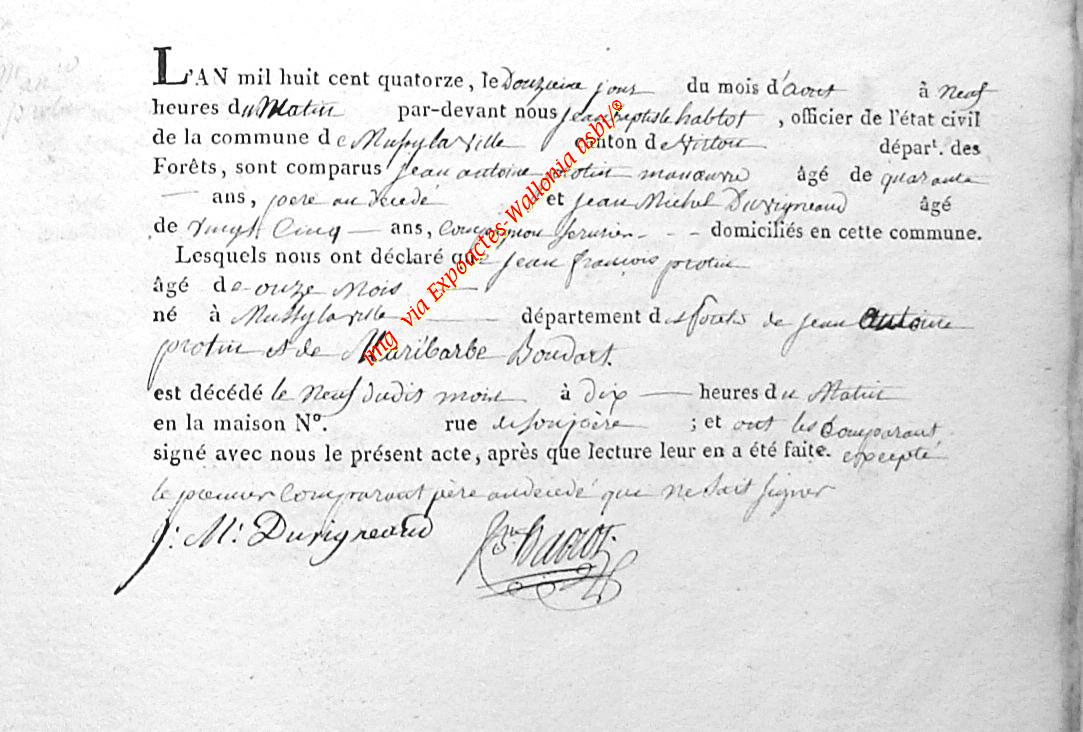 L'AN mil huit cent quatorze, le Douzieme jour du mois d'aout à neuf
heures du Matin par-devant nous jean baptiste habtot, officier de l'état civil
de la commune de Mussylaville canton de virton départ. des
Forêts, sont comparus jean antoine protin manœuvre âgé de quarante
— ans, père au decedé et jean Michel Duvigneaud âgé
de vingt Cinq — ans, Compagnon serurier - - domiciliés en cette commune.
Lesquels nous ont déclaré que jean françois protin
âgé de onze Mois —
né à Mussylaville — département des forêts de jean Antoine
protin et de Maribarbe Boudart.
est décédé le neuf dudit mois à dix — heures du Matin
en la maison N°. rue de son père ; et ont les Comparant
signé avec nous le présent acte, après que lecture leur en a été faite. excepté
le premier Comparant père audecedé que ne sait signer
j: M: Duvigneaud
img via Expoactes-Wallonia asbt/©